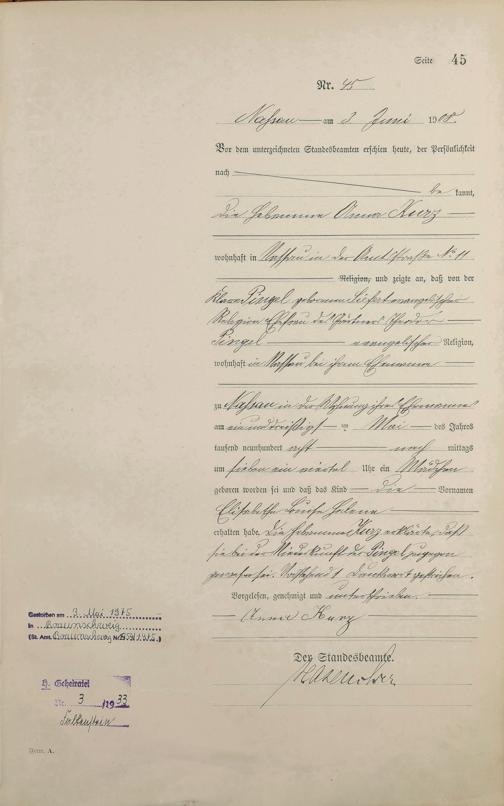 Seite 45
Nr. 45
Nassau am 2. Juni 1908.
Vor dem unterzeichneten Standesbeamten erschien heute, der Persönlichkeit
nach
be kannt,
die Hebamme Anna Kurz
wohnhaft in Nassau in der Amtstraße No 11
Religion, und zeigte an, daß von der
Klara Pingel geborenen Siefert evangelischer
Religion Ehefrau des Gärtners Theodor
Pingel evangelischer Religion,
wohnhaft in Nassau bei ihrem Ehemanne
zu Nassau in der Wohnung ihres Ehemannes
am ein und dreißigsten Mai des Jahres
tausend neunhundert acht nach mittags
um sieben ein viertel Uhr ein Mädchen
geboren worden sei und daß das Kind die Vornamen
Elisabethe Luise Helene
erhalten habe. Die Hebamme Kurz erklärte, daß
sie bei der Niederkunft der Pingel zugegen
gewesen sei. Vorstehend 1 Druckwort gestrichen.
Vorgelesen, genehmigt und unterschrieben.
Anna Kurz
Der Standesbeamte.
Gestorben am 3. Mai 1975
in Braunschweig
(St. Amt. Braunschweig Nr.
H. Geheiratet
Nr. 3 /1933
Falkenstein
Form. A.